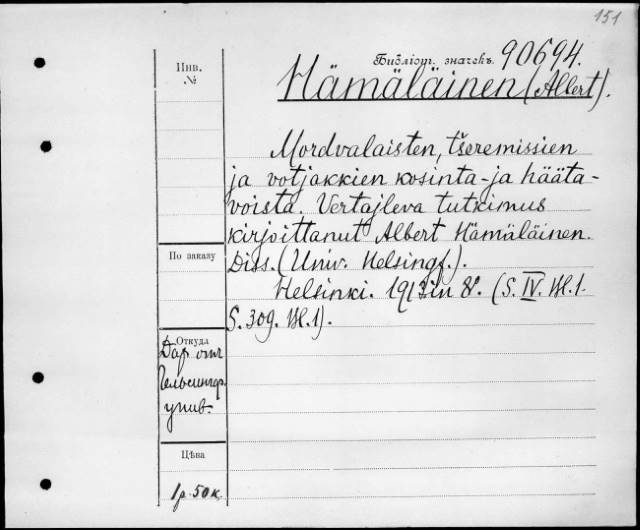 151
Библіот. значекъ. 90694.
Инв.
№
Hämäläinen (Albert).
Mordvalaisten, tšeremissien
ja votjakkien kosinta- ja häätä-
voista. Vertajleva tutkimus
kirjoittanut Albert Hämäläinen.
По заказу
Diss. (Univ. Helsingf.).
Helsinki. 1913 in 8°. (S. IV. Bl. 1.
S. 309. Bl. 1).
Откуда
Дар отъ
Гельсингф.
унив.
Цѣва
1 р. 50 к.